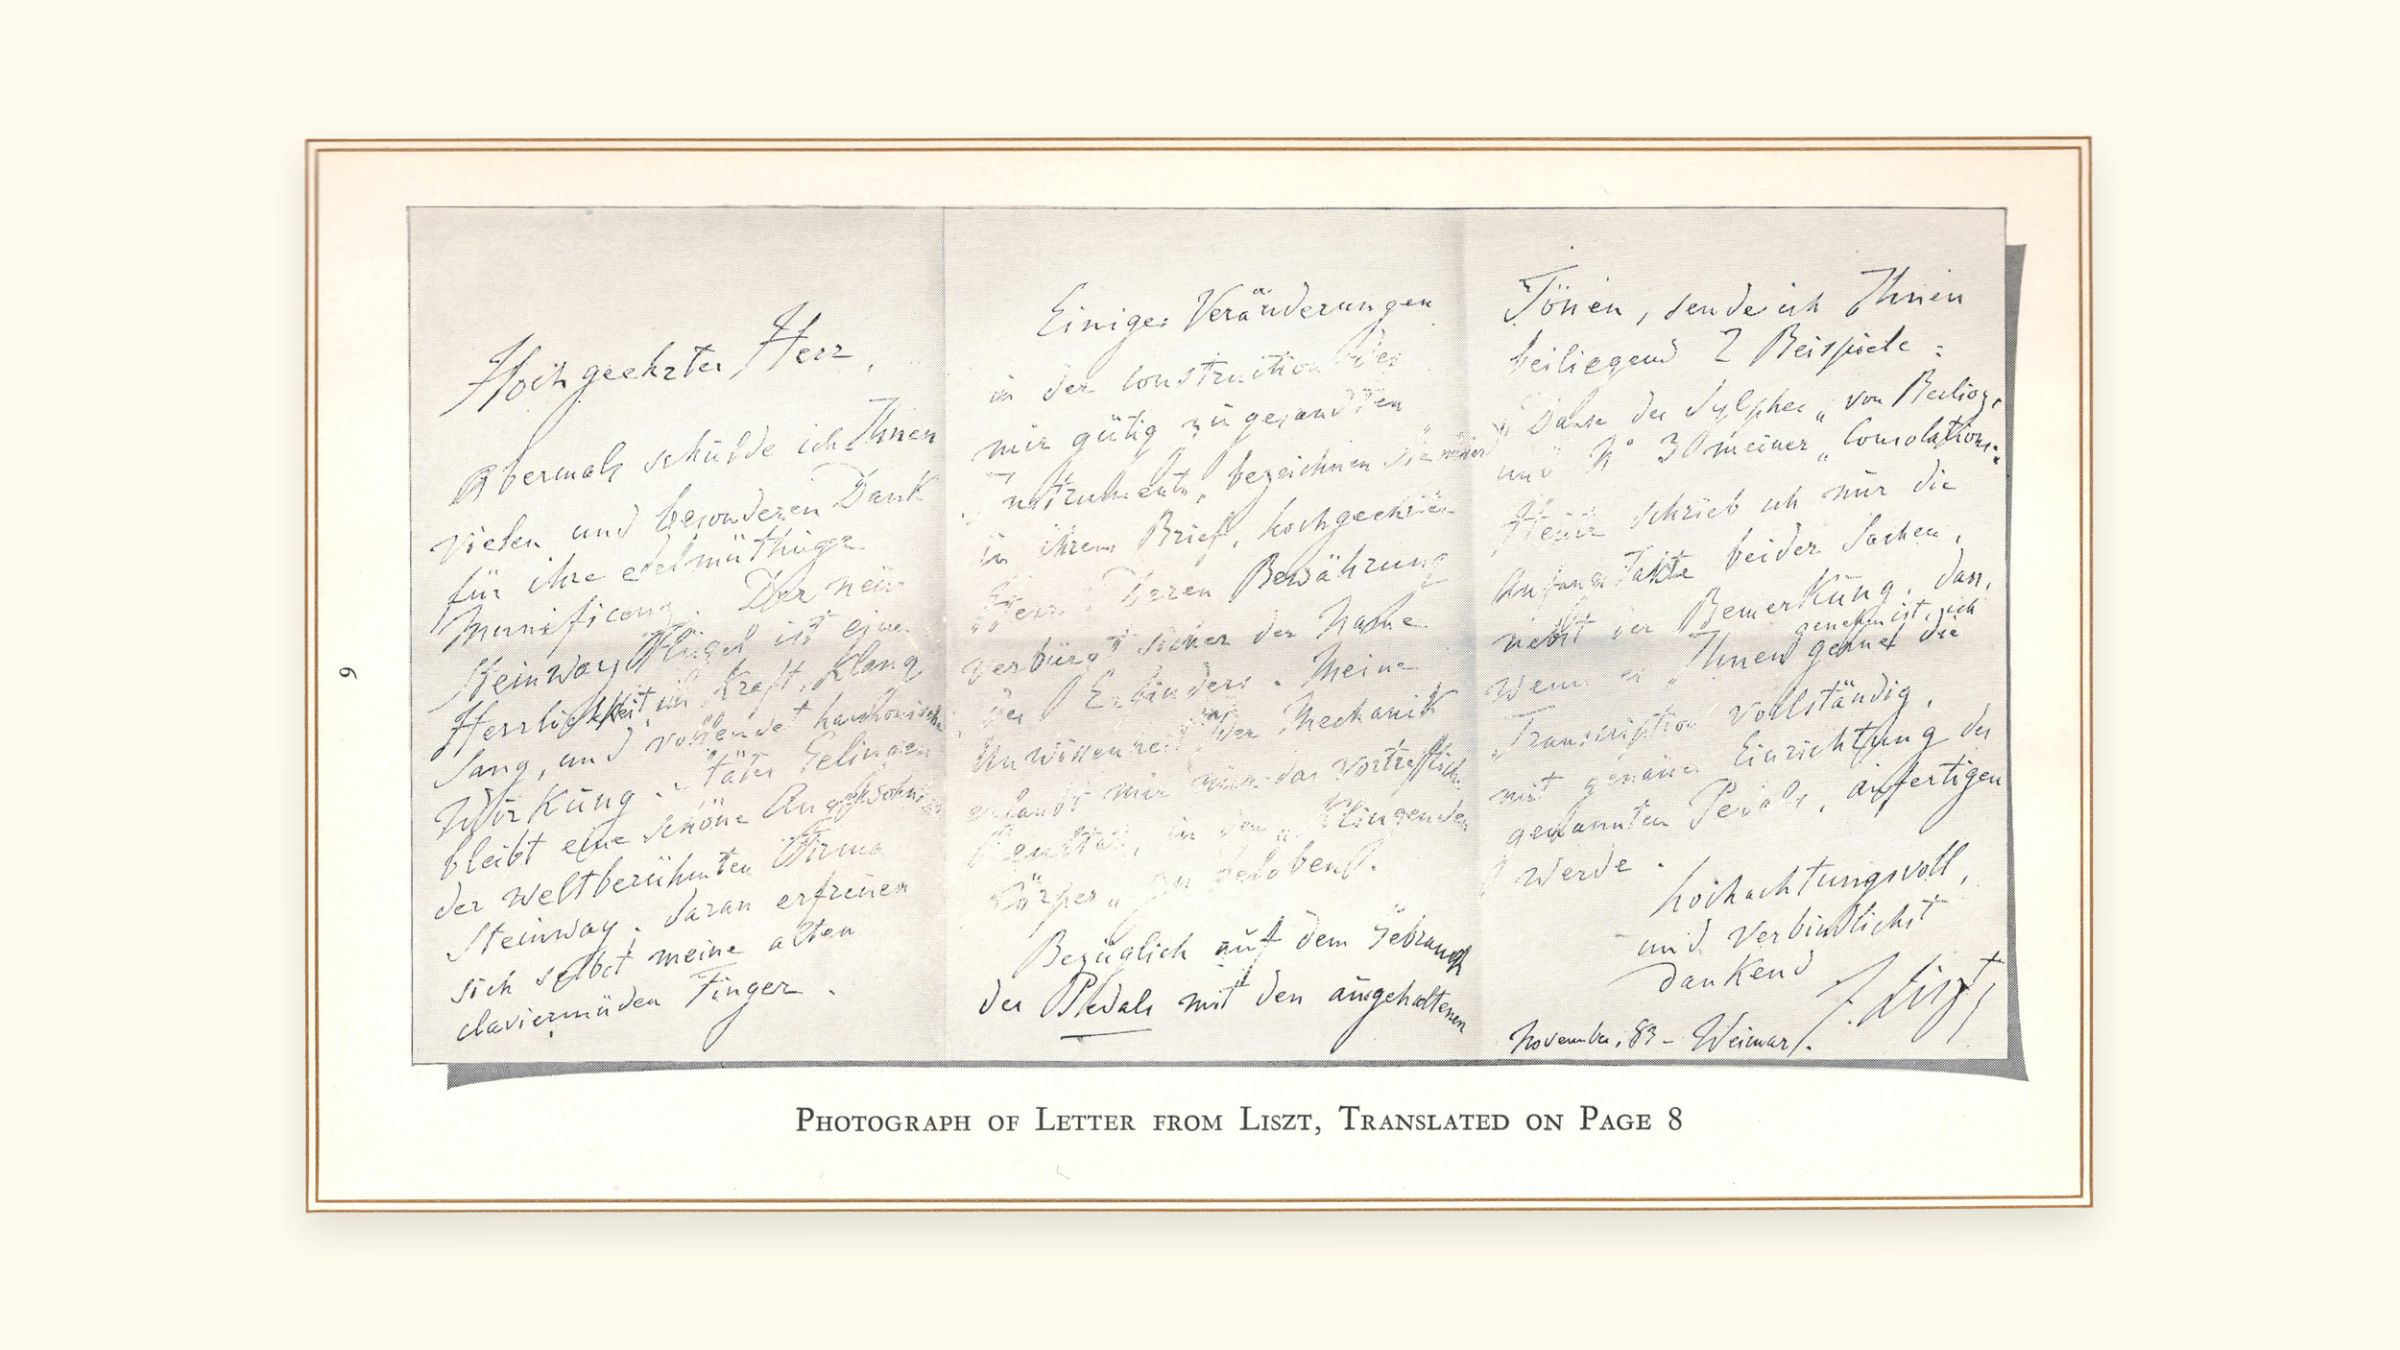 Hochgeehrter Herr,
Abermals schulde ich Ihnen
vielen und besonderen Dank
für ihre edelmüthige
Munificenz. Der neue
Steinway Flügel ist eine
Herrlichkeit in Kraft, Klang
Sang, und vollendet harmonische
Wirkung. Gelingen
bleibt eine schöne Angewohnheit
der weltberühmten Firma
Steinway. daran erfreuen
sich selbst meine alten
claviermüden Finger.
Einige Veränderungen
in der Construction des
mir gütig zugesandten
Instruments, bezeichnen Sie näher
in ihrem Brief, hochgeehrter
Herr. Deren Bewährung
verbürgt sicher der Name
des Erfinders. Meine
Unwissenheit in der Mechanik
erlaubt mir nur das Vortreffliche
Resultat, in dem „Klingenden
Körper„ zu geloben.
Bezüglich auf dem Gebrauch
des Pedals mit den angehaltenen
Tönen, sende ich Ihnen
beiliegend 2 Beispiele:
Danse des Sylphes„ von Berlioz,
und No 3 meiner „Consolations„
Heute schrieb ich nur die
Anfangs Takte beider Sachen,
nebst der Bemerkung, dass,
wenn es Ihnen genehm ist, ich die
Transcription vollständig,
mit genauer Einrichtung des
genannten Pedals, anfertigen
werde.
hochachtungsvoll,
und verbindlichst
dankend
F. Liszt
November, 83 - Weimar.
9
Photograph of Letter from Liszt, Translated on Page 8